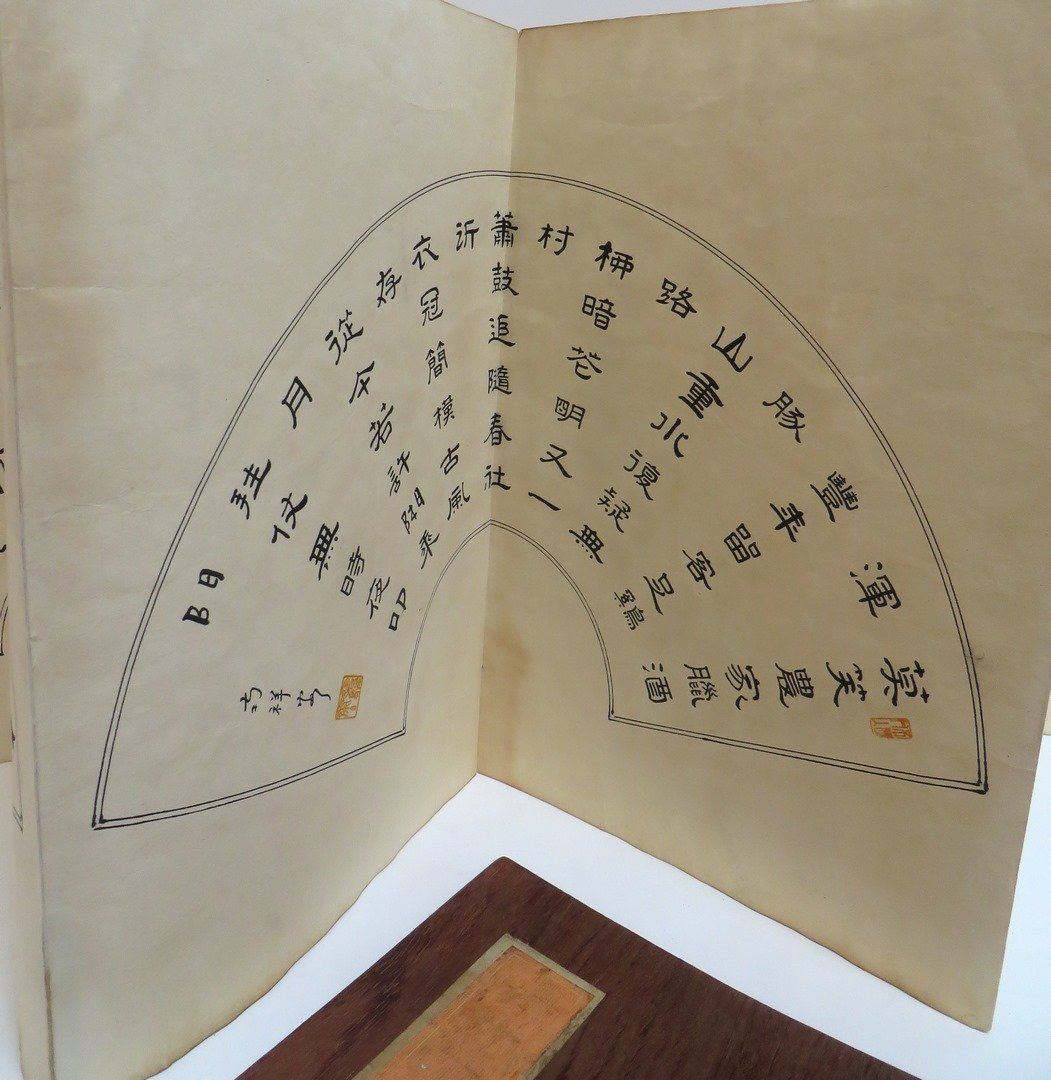 莫笑農家臘酒
渾
豐年留客足鷄
豚
山重水復疑無
路
柳暗花明又一
村
簫鼓追隨春社
近
衣冠簡樸古風
存
從今若許閒乘
月
拄杖無時夜叩
門